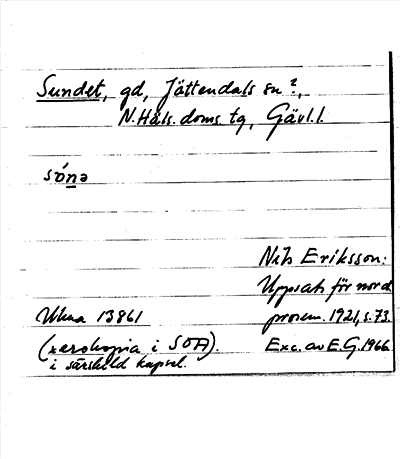 Sundet, gd, Jättendals sn?,
N.Häls. doms. tg, Gävl.l.
sóṉə
Nils Eriksson:
Uppsats för nord.
Ulma 13861 prosem. 1921, s.73.
(xerokopia i SOA). Exc. av E.G. 1966
i särskild kapsel.